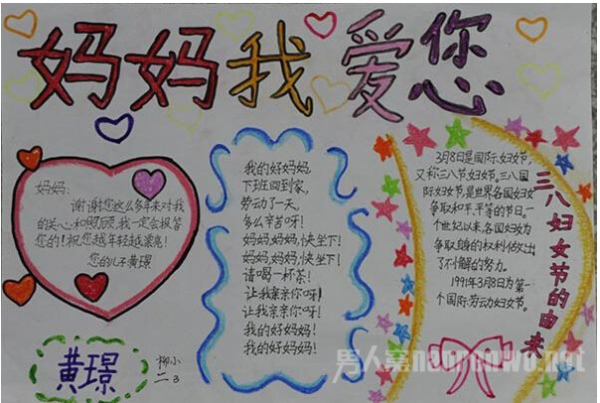 妈妈我爱您
妈妈:
谢谢您这么多年来对我
的关心和照顾,我一定会报答
您的!祝您越年轻越漂亮!
您的儿子黄璟
黄璟
柳小
二3
我的好妈妈,
下班回到家,
劳动了一天,
多么辛苦呀!
妈妈,妈妈,快坐下!
妈妈,妈妈,快坐下!
请喝一杯茶!
让我亲亲你呀!
让我亲亲你呀!
我的好妈妈!
我的好妈妈!
3月8日是国际妇女节,
又称三八节妇女节。三八国
际妇女节,是世界各国妇女
争取和平、平等的节日。一
个世纪以来,各国妇女为
争取自身的权利做出
了不懈的努力。
1991年3月8日为第一
个国际劳动妇女节。
三八妇女节的由来
男人窝nanrenwo.net